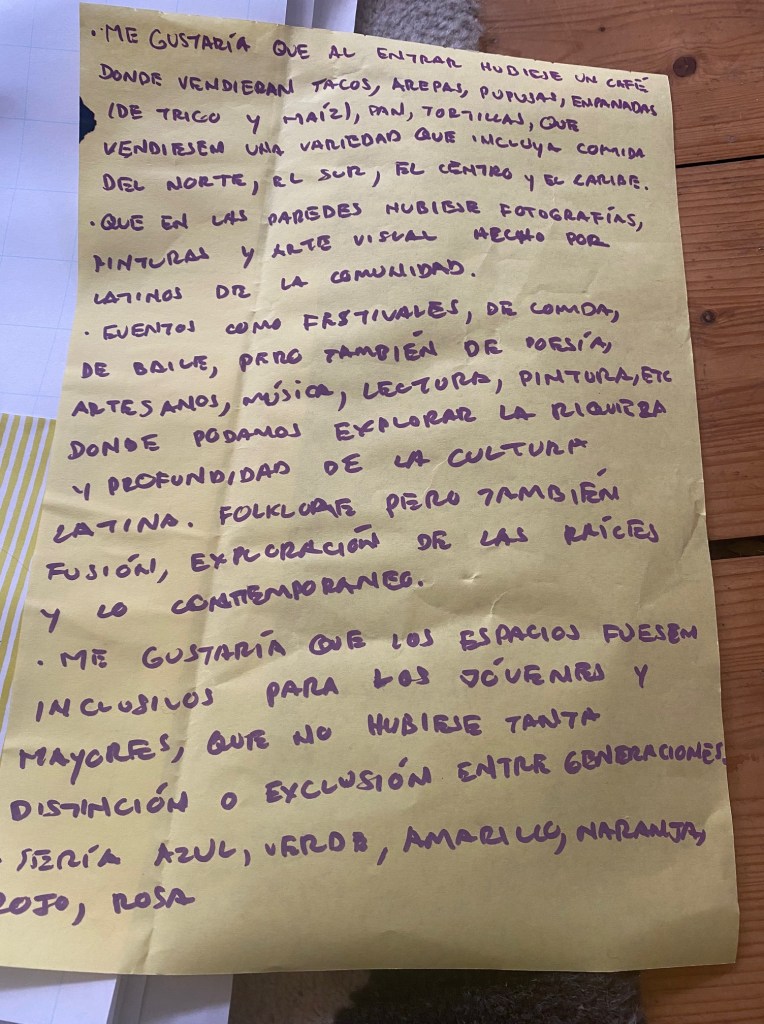 · ME GUSTARÍA QUE AL ENTRAR HUBIESE UN CAFÉ
DONDE VENDIERAN TACOS, AREPAS, PUPUSAS, EMPANADAS
(DE TRIGO Y MAÍZ), PAN, TORTILLAS, QUE
VENDIESEN UNA VARIEDAD QUE INCLUYA COMIDA
DEL NORTE, EL SUR, EL CENTRO Y EL CARIBE.
· QUE EN LAS PAREDES HUBIESE FOTOGRAFÍAS,
PINTURAS Y ARTE VISUAL HECHO POR
LATINOS DE LA COMUNIDAD.
· EVENTOS COMO FESTIVALES, DE COMIDA,
DE BAILE, PERO TAMBIÉN DE POESÍA,
ARTESANOS, MÚSICA, LECTURA, PINTURA, ETC
DONDE PODAMOS EXPLORAR LA RIQUEZA
Y PROFUNDIDAD DE LA CULTURA
LATINA. FOLKLORE PERO TAMBIÉN
FUSIÓN, EXPLORACIÓN DE LAS RAÍCES
Y LO CONTEMPORANEO.
· ME GUSTARÍA QUE LOS ESPACIOS FUESEN
INCLUSIVOS PARA LOS JÓVENES Y
MAYORES, QUE NO HUBIESE TANTA
DISTINCIÓN O EXCLUSIÓN ENTRE GENERACIONES.
· SERÍA AZUL, VERDE, AMARILLO, NARANJA,
ROJO, ROSA